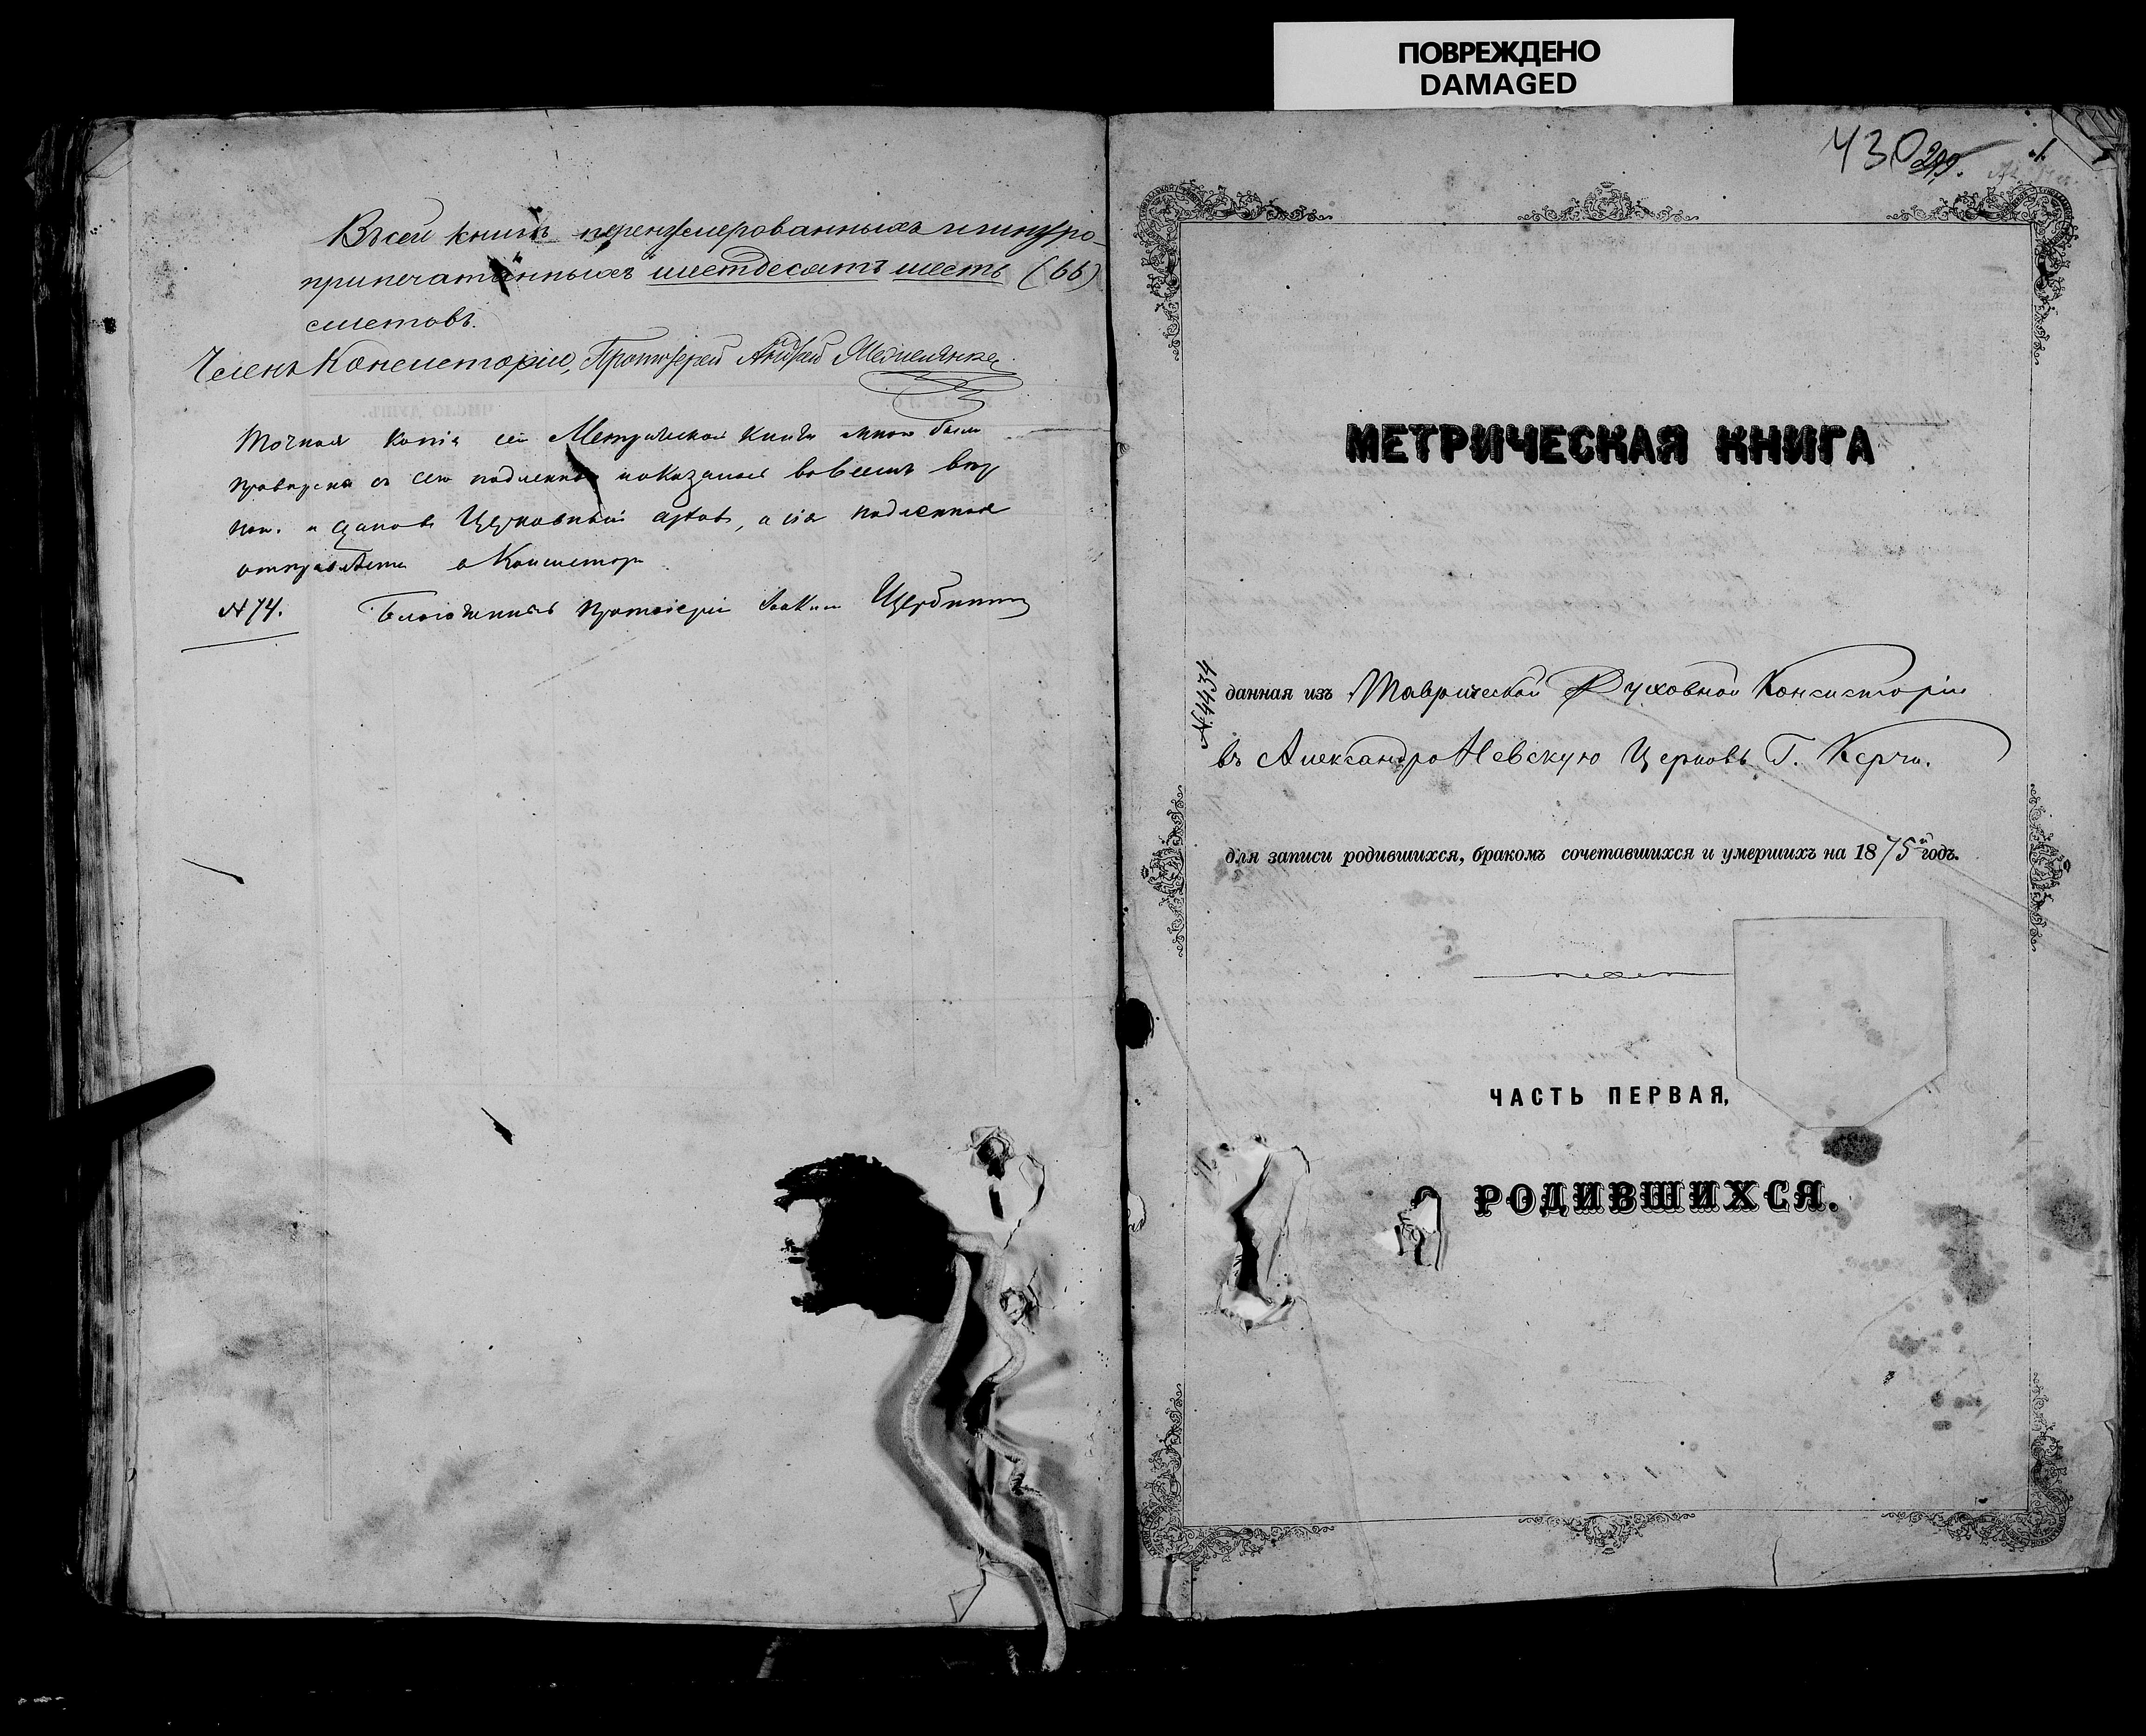 ПОВРЕЖДЕНО
DAMAGED
Въ сей книгѣ перенумерованныхъ и шнуро-
припечатанныхъ шестдесятъ шесть (66)
листовъ.
Членъ Консисторіи, Протоіерей Андрей
Точная копія сей Метрической книги мною была
проверена съ сею подленною и оказалась во всемъ
и сдана въ Церковный архивъ, а сія подленная
отправлена в
№ 74. Благочинный Протоіерей
430 299. 1.
МЕТРИЧЕСКАЯ КНИГА
№ 4434
данная изъ Таврической Духовной Консисторіи
въ Александро Невскую Церковь Г. Керчи.
для записи родившихся, бракомъ сочетавшихся и умершихъ на 1875й годъ.
ЧАСТЬ ПЕРВАЯ,
РОДИВШИХСЯ.